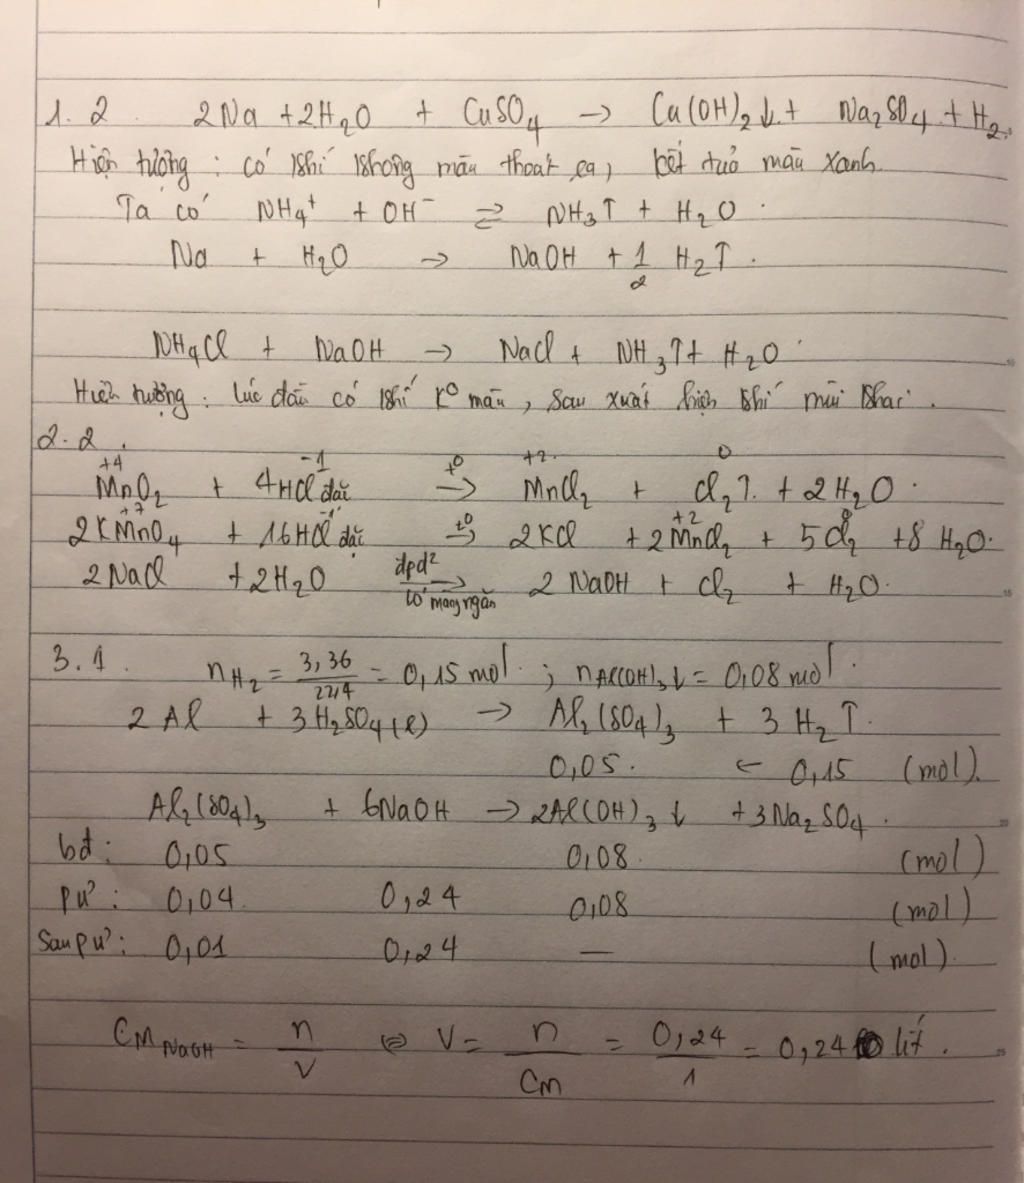 1.2. 2Na + 2H₂O + CuSO₄ → Cu(OH)₂↓ + Na₂SO₄ + H₂.
Hiện tượng : có khí không màu thoát ra, kết tủa màu xanh.
Ta có NH₄⁺ + OH⁻ ⇌ NH₃↑ + H₂O .
Na + H₂O → NaOH + 1/2 H₂↑ .
NH₄Cl + NaOH → NaCl + NH₃↑ + H₂O .
Hiện tượng : lúc đầu có khí k⁰ màu , sau xuất hiện khí mùi khai .
2.2 .
+4 -1 t⁰ +2 0
MnO₂ + 4HCl đặc → MnCl₂ + Cl₂↑. + 2H₂O .
+7 -1 t⁰ +2 0
2KMnO₄ + 16HCl đặc → 2KCl + 2MnCl₂ + 5Cl₂ + 8H₂O.
2NaCl + 2H₂O đpd² → có màng ngăn 2NaOH + Cl₂ + H₂O.
3.1 . n H₂ = 3,36/22,4 = 0,15 mol . ; n Al(OH)₃↓ = 0,08 mol .
2Al + 3H₂SO₄(l) → Al₂(SO₄)₃ + 3H₂↑.
0,05. ← 0,15 (mol).
Al₂(SO₄)₃ + 6NaOH → 2Al(OH)₃↓ + 3Na₂SO₄ .
bđ : 0,05 0,08. (mol)
pư : 0,04. 0,24 0,08 (mol)
Sau pư : 0,01 0,24 — (mol).
CM NaOH = n/V ⇔ V = n/CM = 0,24/1 = 0,24 lít .